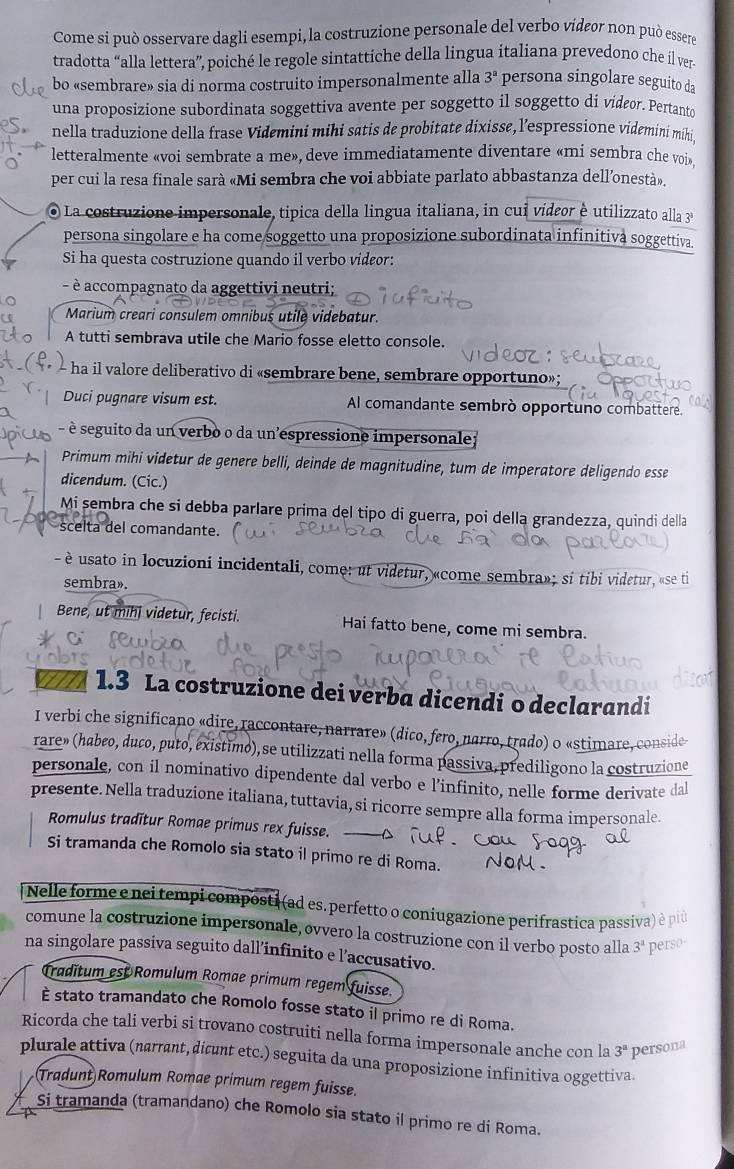 Come si può osservare dagli esempi, la costruzione personale del verbo videor non può essere
tradotta “alla lettera”, poiché le regole sintattiche della lingua italiana prevedono che il ver-
che bo «sembrare» sia di norma costruito impersonalmente alla 3ª persona singolare seguito da
una proposizione subordinata soggettiva avente per soggetto il soggetto di videor. Pertanto
nella traduzione della frase Videmini mihi satis de probitate dixisse, l'espressione videmini mihi,
letteralmente «voi sembrate a me», deve immediatamente diventare «mi sembra che voi»,
per cui la resa finale sarà «Mi sembra che voi abbiate parlato abbastanza dell'onestà».
La costruzione impersonale, tipica della lingua italiana, in cui videor è utilizzato alla 3ª
persona singolare e ha come soggetto una proposizione subordinata infinitiva soggettiva.
Si ha questa costruzione quando il verbo videor:
- è accompagnato da aggettivi neutri;
ACC. + VIDEOR 3ª p.s. + infinito
Marium creari consulem omnibus utile videbatur.
A tutti sembrava utile che Mario fosse eletto console.
videor: sembrare
- ha il valore deliberativo di «sembrare bene, sembrare opportuno»; opportuno
(in questo caso)
Duci pugnare visum est. Al comandante sembrò opportuno combattere.
- è seguito da un verbo o da un'espressione impersonale;
Primum mihi videtur de genere belli, deinde de magnitudine, tum de imperatore deligendo esse
dicendum. (Cic.)
Mi sembra che si debba parlare prima del tipo di guerra, poi della grandezza, quindi della
scelta del comandante. (mi sembra che sia da parlare)
- è usato in locuzioni incidentali, come: ut videtur, «come sembra»; si tibi videtur, «se ti
sembra».
Bene, ut mihi videtur, fecisti. Hai fatto bene, come mi sembra.
* ci sembra che presto imparerai il latino
vobis videtur fore ut mox linguam latinam
1.3 La costruzione dei verba dicendi o declarandi
I verbi che significano «dire, raccontare, narrare» (dico, fero, narro, trado) o «stimare, conside-
rare» (habeo, duco, puto, existimo), se utilizzati nella forma passiva, prediligono la costruzione
personale, con il nominativo dipendente dal verbo e l'infinito, nelle forme derivate dal
presente. Nella traduzione italiana, tuttavia, si ricorre sempre alla forma impersonale.
Romulus traditur Romae primus rex fuisse. inf. con sogg. al
Si tramanda che Romolo sia stato il primo re di Roma. NOM.
Nelle forme e nei tempi composti (ad es. perfetto o coniugazione perifrastica passiva) è più
comune la costruzione impersonale, ovvero la costruzione con il verbo posto alla 3ª perso-
na singolare passiva seguito dall'infinito e l'accusativo.
Traditum est Romulum Romae primum regem fuisse.
È stato tramandato che Romolo fosse stato il primo re di Roma.
Ricorda che tali verbi si trovano costruiti nella forma impersonale anche con la 3ª persona
plurale attiva (narrant, dicunt etc.) seguita da una proposizione infinitiva oggettiva.
Tradunt Romulum Romae primum regem fuisse.
Si tramanda (tramandano) che Romolo sia stato il primo re di Roma.